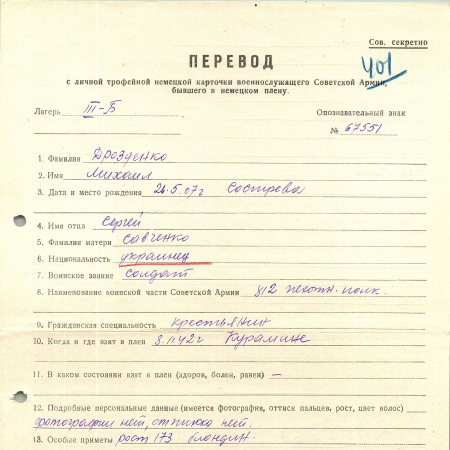 Сов. секретно
401
ПЕРЕВОД
с личной трофейной немецкой карточки военнослужащего Советской Армии,
бывшего в немецком плену.
Лагерь III-Б
Опознавательный знак
№ 67551
1. Фамилия Дрозденко
2. Имя Михаил
3. Дата и место рождения 26.5.07г Состреба
4. Имя отца Сергей
5. Фамилия матери Савченко
6. Национальность украинец
7. Воинское звание солдат
8. Наименование воинской части Советской Армии 812 пехотн. полк.
9. Гражданская специальность крестьянин
10. Когда и где взят в плен 8.11.42г Курамине
11. В каком состоянии взят в плен (здоров, болен, ранен) —
12. Подробные персональные данные (имеется фотография, оттиск пальцев, рост, цвет волос)
фотографии нет, оттиска нет.
13. Особые приметы рост 173 блондин.